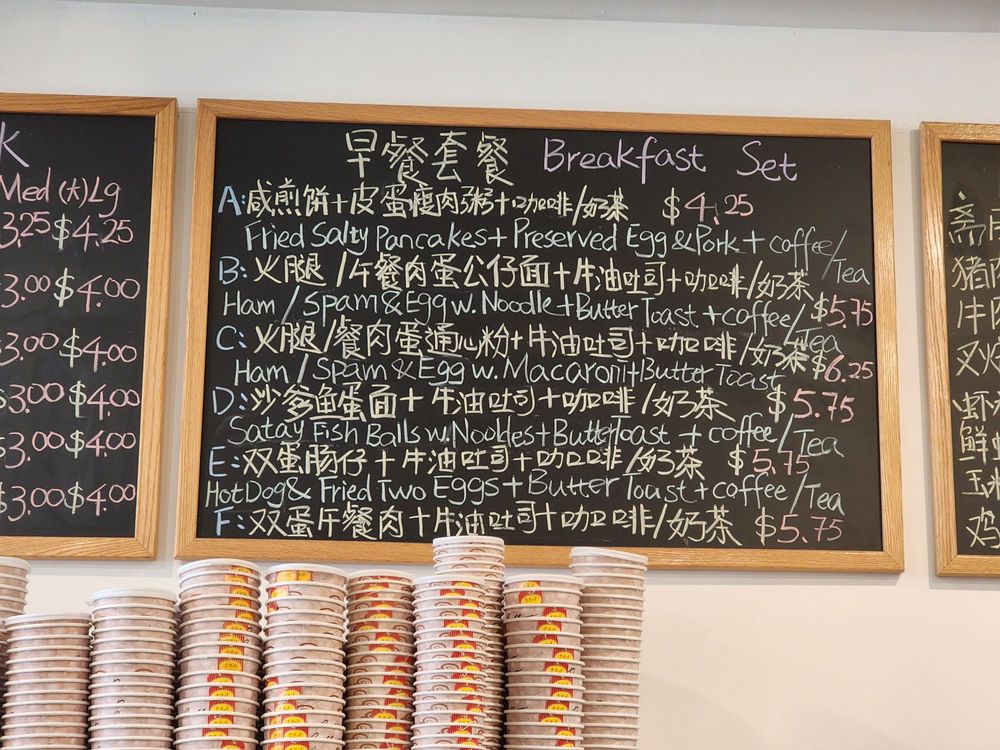 K
Med (大) Lg
3.25 $4.25
3.00 $4.00
3.00 $4.00
3.00 $4.00
$3.00 $4.00
$3.00 $4.00
早餐套餐 Breakfast Set
A: 咸煎饼+皮蛋瘦肉粥+咖啡/奶茶 $4.25
Fried Salty Pancakes + Preserved Egg & Pork + coffee/Tea
B: 火腿/午餐肉蛋公仔面+牛油吐司+咖啡/奶茶
Ham / Spam & Egg w. Noodle + Butter Toast + coffee/Tea $5.75
C: 火腿/餐肉蛋通心粉+牛油吐司+咖啡/奶茶 $6.25
Ham / Spam & Egg w. Macaroni + Butter Toast
D: 沙爹鱼蛋面+牛油吐司+咖啡/奶茶 $5.75
Satay Fish Balls w. Noodles + Butter Toast + coffee/Tea
E: 双蛋肠仔+牛油吐司+咖啡/奶茶 $5.75
Hot Dog & Fried Two Eggs + Butter Toast + coffee/Tea
F: 双蛋午餐肉+牛油吐司+咖啡/奶茶 $5.75
斋
猪
牛
叉
虾
鲜
玉米
鸡